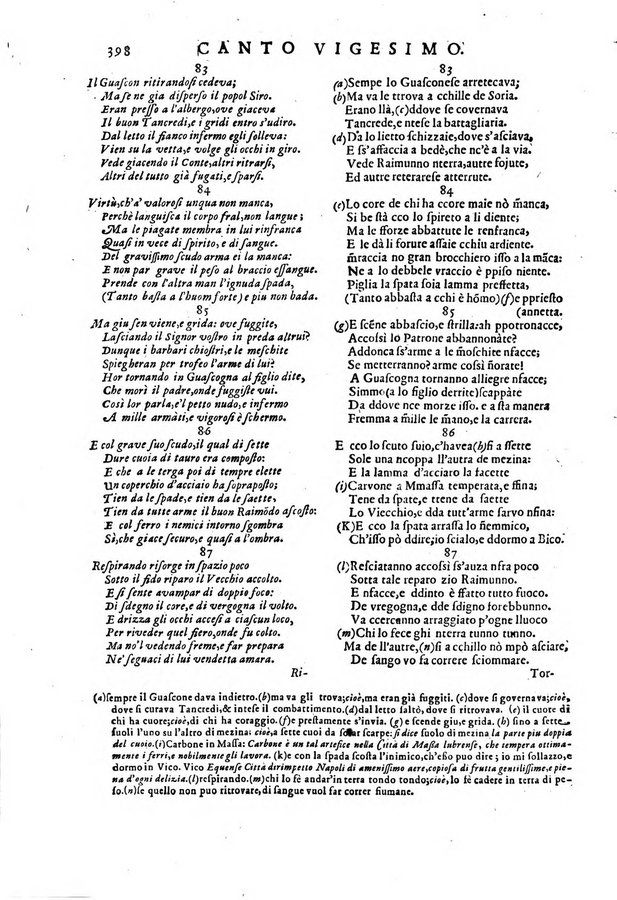 398 CANTO VIGESIMO.
83
Il Guaſcon ritirandoſi cedeva;
Ma ſe ne gia diſperſo il popol Siro.
Eran preſſo a l'albergo, ove giaceva
Il buon Tancredi, e i gridi entro s'udiro.
Dal letto il fianco infermo egli ſolleva:
Vien su la vetta, e volge gli occhi in giro.
Vede giacendo il Conte, altri ritrarſi,
Altri del tutto già fugati, e ſparſi.
84
Virtù, ch'a' valoroſi unqua non manca,
Perchè languiſca il corpo fral, non langue;
Ma le piagate membra in lui rinfranca
Quaſi in vece di ſpirito, e di ſangue.
Del graviſſimo ſcudo arma ei la manca:
E non par grave il peſo al braccio eſſangue.
Prende con l'altra man l'ignuda ſpada,
(Tanto baſta a l'huom forte) e piu non bada.
85
Ma giu ſen viene, e grida: ove fuggite,
Laſciando il Signor voſtro in preda altrui?
Dunque i barbari chioſtri, e le meſchite
Spiegheran per trofeo l'arme di lui?
Hor tornando in Guaſcogna al figlio dite,
Che morì il padre, onde fuggiſte vui.
Così lor parla, e'l petto nudo, e infermo
A mille armati, e vigoroſi è ſchermo.
86
E col grave ſuo ſcudo, il qual di ſette
Dure cuoia di tauro era compoſto;
E che a le terga poi di tempre elette
Un coperchio d'acciaio ha ſoprapoſto;
Tien da le ſpade, e tien da le ſaette,
Tien da tutte arme il buon Raimōdo aſcoſto:
E col ferro i nemici intorno ſgombra
Sì, che giace ſecuro, e quaſi a l'ombra.
87
Reſpirando riſorge in ſpazio poco
Sotto il fido riparo il Vecchio accolto.
E ſi ſente avampar di doppio foco:
Di ſdegno il core, e di vergogna il volto.
E drizza gli occhi acceſi a ciaſcun loco,
Per riveder quel fiero, onde fu colto.
Ma no'l vedendo freme, e far prepara
Ne' ſeguaci di lui vendetta amara.
Ri-
83
(a)Sempe lo Guaſconeſe arretecava;
(b)Ma va le ttrova a cchille de Soria.
Erano llà, (c)ddove ſe covernava
Tancrede, e nteſe la battagliaria.
(d)Da lo lietto ſchizzaie, dove s'aſciava,
E ſs'affaccia a bedè, che nc'è a la via.
Vede Raimunno nterra, autre fojute,
Ed autre reterareſe atterrute.
84
(e)Lo core de chi ha ccore maie nō māca,
Si be ſtà cco lo ſpireto a li diente;
Ma le fforze abbattute le renfranca,
E le dà li forure aſſaie cchiu ardiente.
m̄raccia no gran brocchiero iſſo a la māca:
Ne a lo debbele vraccio è ppiſo niente.
Piglia la ſpata ſoia lamma preffetta,
(Tanto abbaſta a cchi è hōmo)(f)e pprieſto
(annetta.
85
(g)E ſcēne abbaſcio, e ſtrilla: ah ppotronacce,
Accoſſì lo Patrone abbannonàte?
Addonca ſs'arme a le m̄oſchite nfacce;
Se metterranno? arme coſsì ñorate!
A Guaſcogna tornanno alliegre nfacce;
Simmo (a lo figlio derrite) ſcappàte
Da ddove nce morze iſſo. e a ſta manera
Fremma a m̄ille le m̄ano, e la carrera.
86
E cco lo ſcuto ſuio, c'havea(h)fi a ſſette
Sole una ncoppa ll'autra de mezina:
E la lamma d'acciaro la facette
(i)Carvone a Mmaſſa temperata, e ffina;
Tene da ſpate, e ttene da ſaette
Lo Viecchio, e dda tutt'arme ſarvo nfina:
(K)E cco la ſpata arraſſa lo ñemmico,
Ch'iſſo pò ddire; io ſcialo, e ddormo a Bico.
87
(l)Reſciatanno accoſsì ſs'auza nfra poco
Sotta tale reparo zio Raimunno.
E nfacce, e ddinto è ffatto tutto fuoco.
De vregogna, e dde ſdigno forebbunno.
Va ccercanno arraggiato p'ogne lluoco
(m)Chi lo fece ghì nterra tunno tunno.
Ma de ll'autre, (n)ſi a cchillo nō mpò aſciare,
De ſango vo fa correre ſciommare.
Tor-
(a)ſempre il Guaſcone dava indietro.(b)ma va gli trova;cioè, ma eran già fuggiti. (c)dove si governava;cioè,
dove ſi curava Tancredi,& inteſe il combattimento.(d)dal letto ſaltò, dove ſi ritrovava. (e) il cuore di
chi ha cuore;cioè, di chi ha coraggio.(f) e preſtamente s'invia. (g) e ſcende giu, e grida. (h) ſino a ſette
ſuoli l'uno su l'altro di mezina: cioè, a ſette cuoi da ſcarpe: ſi dice ſuolo di mezina la parte piu doppia
del cuoio.(i)Carbone in Maſſa: Carbone è un tal artefice nella Città di Maſſa lubrenſe, che tempera ottima-
mente i ferri, e nobilmente gli lavora. (k)e con la ſpada ſcoſta l'inimico, ch'eſſo può dire; io mi ſollazzo, e
dormo in Vico. Vico Equenſe Città dirimpetto Napoli di ameniſſimo aere, copioſa di frutta gentiliſſime, e pie-
na d'ogni delizia.(l)reſpirando.(m)chi lo fè andar'in terra tondo tondo;cioè, lo fè cadere in terra di pe-
ſo.(n)ſe quello non può ritrovare, di ſangue vuol far correr fiumane.